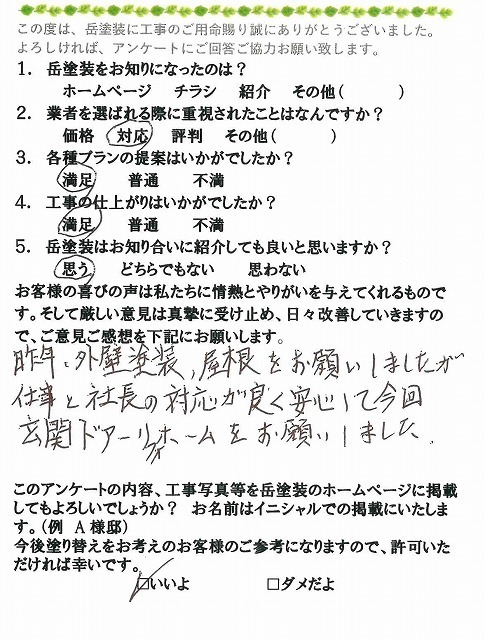 この度は、岳塗装に工事のご用命賜り誠にありがとうございました。
よろしければ、アンケートにご回答ご協力お願い致します。
1. 岳塗装をお知りになったのは？
ホームページ チラシ 紹介 その他( )
2. 業者を選ばれる際に重視されたことはなんですか？
価格 対応 評判 その他( )
3. 各種プランの提案はいかがでしたか？
満足 普通 不満
4. 工事の仕上がりはいかがでしたか？
満足 普通 不満
5. 岳塗装はお知り合いに紹介しても良いと思いますか？
思う どちらでもない 思わない
お客様の喜びの声は私たちに情熱とやりがいを与えてくれるもので
す。そして厳しい意見は真摯に受け止め、日々改善していきますの
で、ご意見ご感想を下記にお願いします。
昨年、外壁塗装、屋根をお願いしましたが
仕事と社長の対応が良く安心して今回
玄関ドアーリフォームをお願いしました.
このアンケートの内容、工事写真等を岳塗装のホームページに掲載
してもよろしいでしょうか？ お名前はイニシャルでの掲載にいたしま
す。(例 A 様邸)
今後塗り替えをお考えのお客様のご参考になりますので、許可いた
だければ幸いです。
☑いいよ □ダメだよ